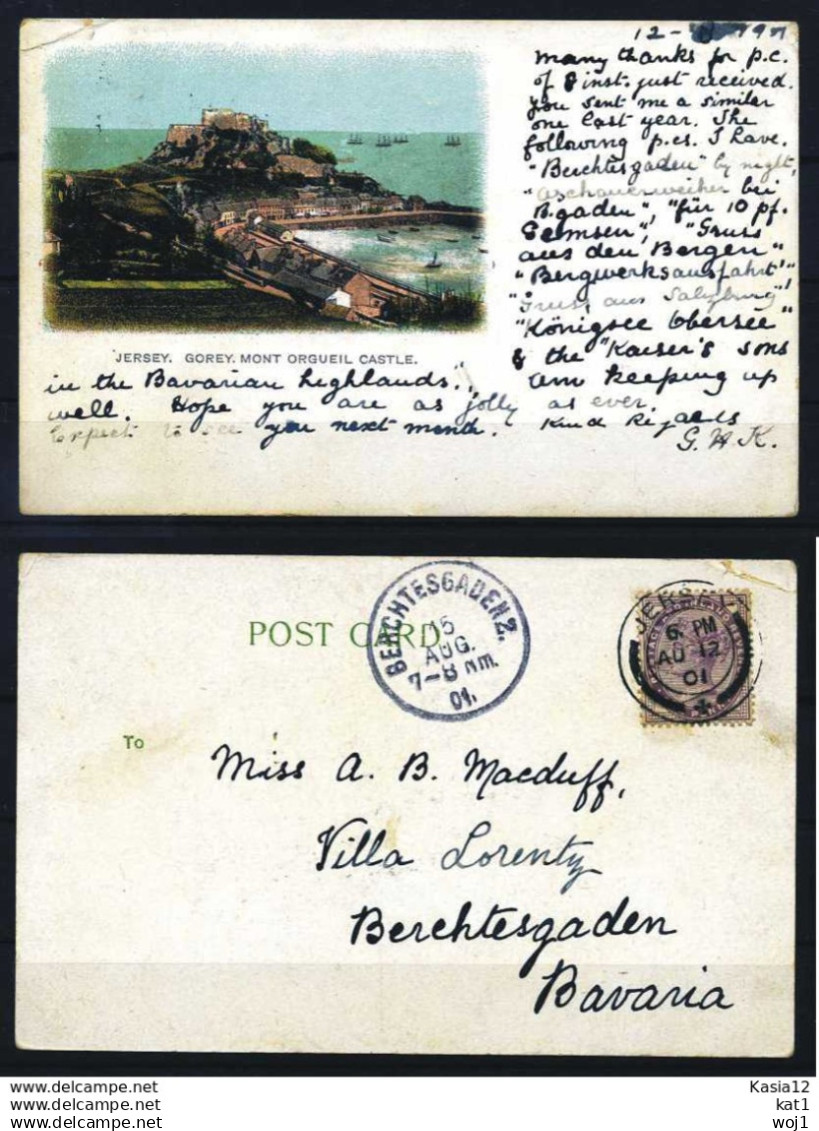 12-8-1901
Many thanks for p.c.
of 8 inst. just received.
You sent me a similar
one last year. The
following p.cs. I have.
"Berchtesgaden" by night,
"Aschauerweiher bei
B.gaden", "für 10 pf.
Gemsen", "Gruss
aus den Bergen"
"Bergwerksausfahrt"
"Gruss aus Salzburg"
"Königsee Obersee"
& the "Kaiser's sons
JERSEY. GOREY. MONT ORGUEIL CASTLE.
in the Bavarian highlands". am keeping up
well. Hope you are as jolly as ever
Expect to see you next month. Kind Regards
G. H. K.
BERCHTESGADEN 2.
16
AUG.
7-8 Nm.
01.
JERSEY
6. PM
AU 12
01
POST CARD.
To
Miss A. B. Macduff,
Villa Lorentz
Berchtesgaden
Bavaria
www.delcampe.net
www.delcampe.net
www.delcampe.net
Kasia12
kat1
woj1